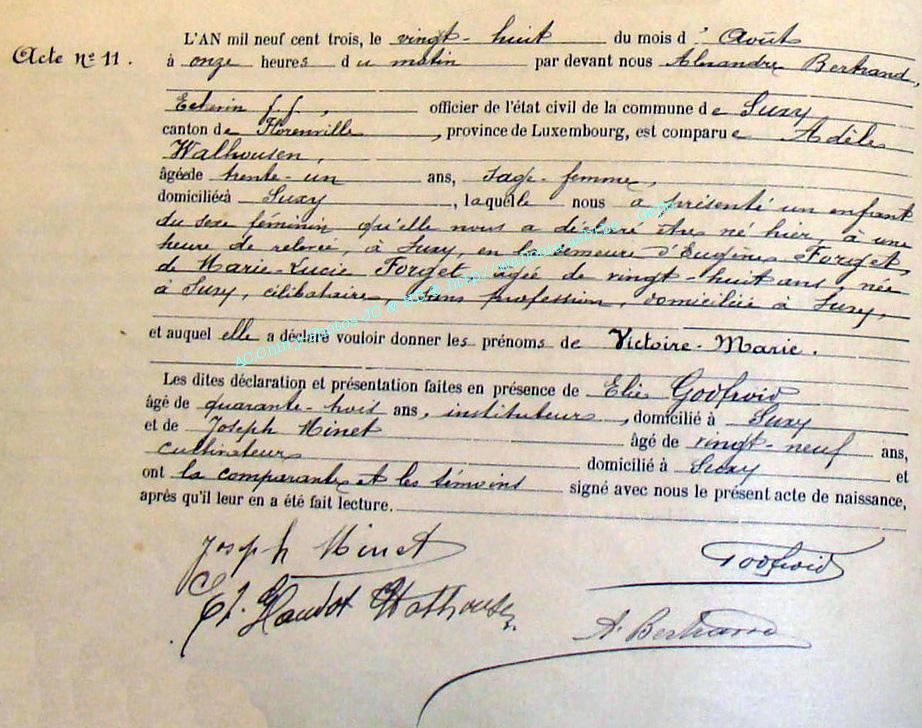 Acte nº 11.
L'AN mil neuf cent trois, le vingt-huit du mois d'Août
à onze heures du matin par devant nous Alexandre Bertrand,
Echevin f.f., officier de l'état civil de la commune de Suxy
canton de Florenville, province de Luxembourg, est comparue Adèle
Walhousen,
âgée de trente-un ans, sage-femme,
domiciliée à Suxy, laquelle nous a présenté un enfant
du sexe féminin qu'elle nous a déclaré être né hier, à une
heure de relevée, à Suxy, en la demeure d'Eugène Forget,
de Marie-Lucie Forget, âgée de vingt-huit ans, née
à Suxy, célibataire, sans profession, domiciliée à Suxy,
et auquel elle a déclaré vouloir donner les prénoms de Victoire-Marie.
Les dites déclaration et présentation faites en présence de Elie Godfroid
âgé de quarante-trois ans, instituteur, domicilié à Suxy
et de Joseph Minet âgé de vingt-neuf ans,
cultivateur domicilié à Suxy et
ont la comparante et les témoins signé avec nous le présent acte de naissance,
après qu'il leur en a été fait lecture.
Joseph Minet Godfroid
Walhousen
A. Bertrand